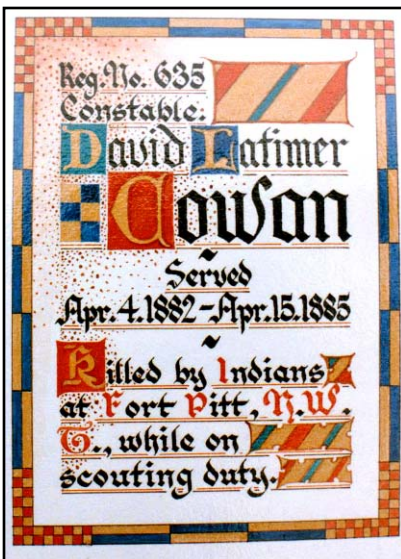 Reg. No. 635
Constable:
David Latimer
Cowan
~
Served
Apr. 4. 1882 - Apr. 15. 1885
~
Killed by Indians
at Fort Pitt, N.W.
T., while on
scouting duty.